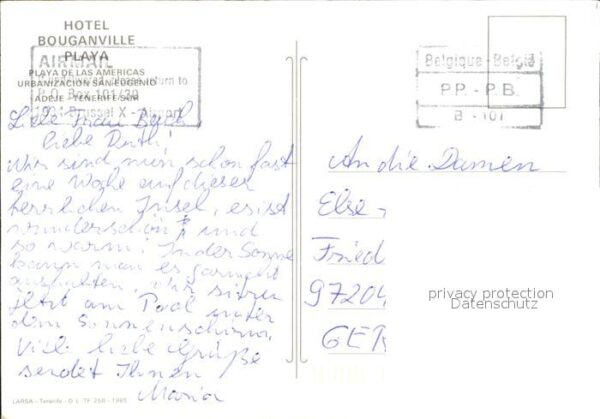 HOTEL
BOUGANVILLE
PLAYA
PLAYA DE LAS AMERICAS
URBANIZACION SAN EUGENIO
ADEJE - TENERIFE SUR
AIRMAIL
return to
P.O. Box 101/20
Brussel X - Airport
Belgique - België
P.P. - P.B.
B - 101
Liebe Frau
liebe Ruth!
Wir sind nun schon fast
eine Woche auf dieser
herrlichen Insel, es ist
wunderschön und
so warm! In der Sonne
kann man es gar nicht
aushalten, wir sitzen
jetzt am Pool unter
dem Sonnenschirm.
Viele liebe Grüße
sendet Ihnen
Maria
An die Damen
Else
Fried
97204
GER
privacy protection
Datenschutz
LARSA - Tenerife - D.L. TF 258 - 1985